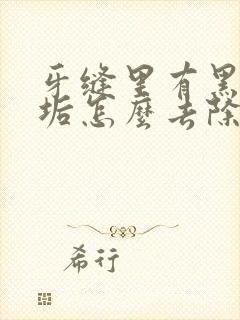 牙缝里有黑
垢怎麽去除
希行